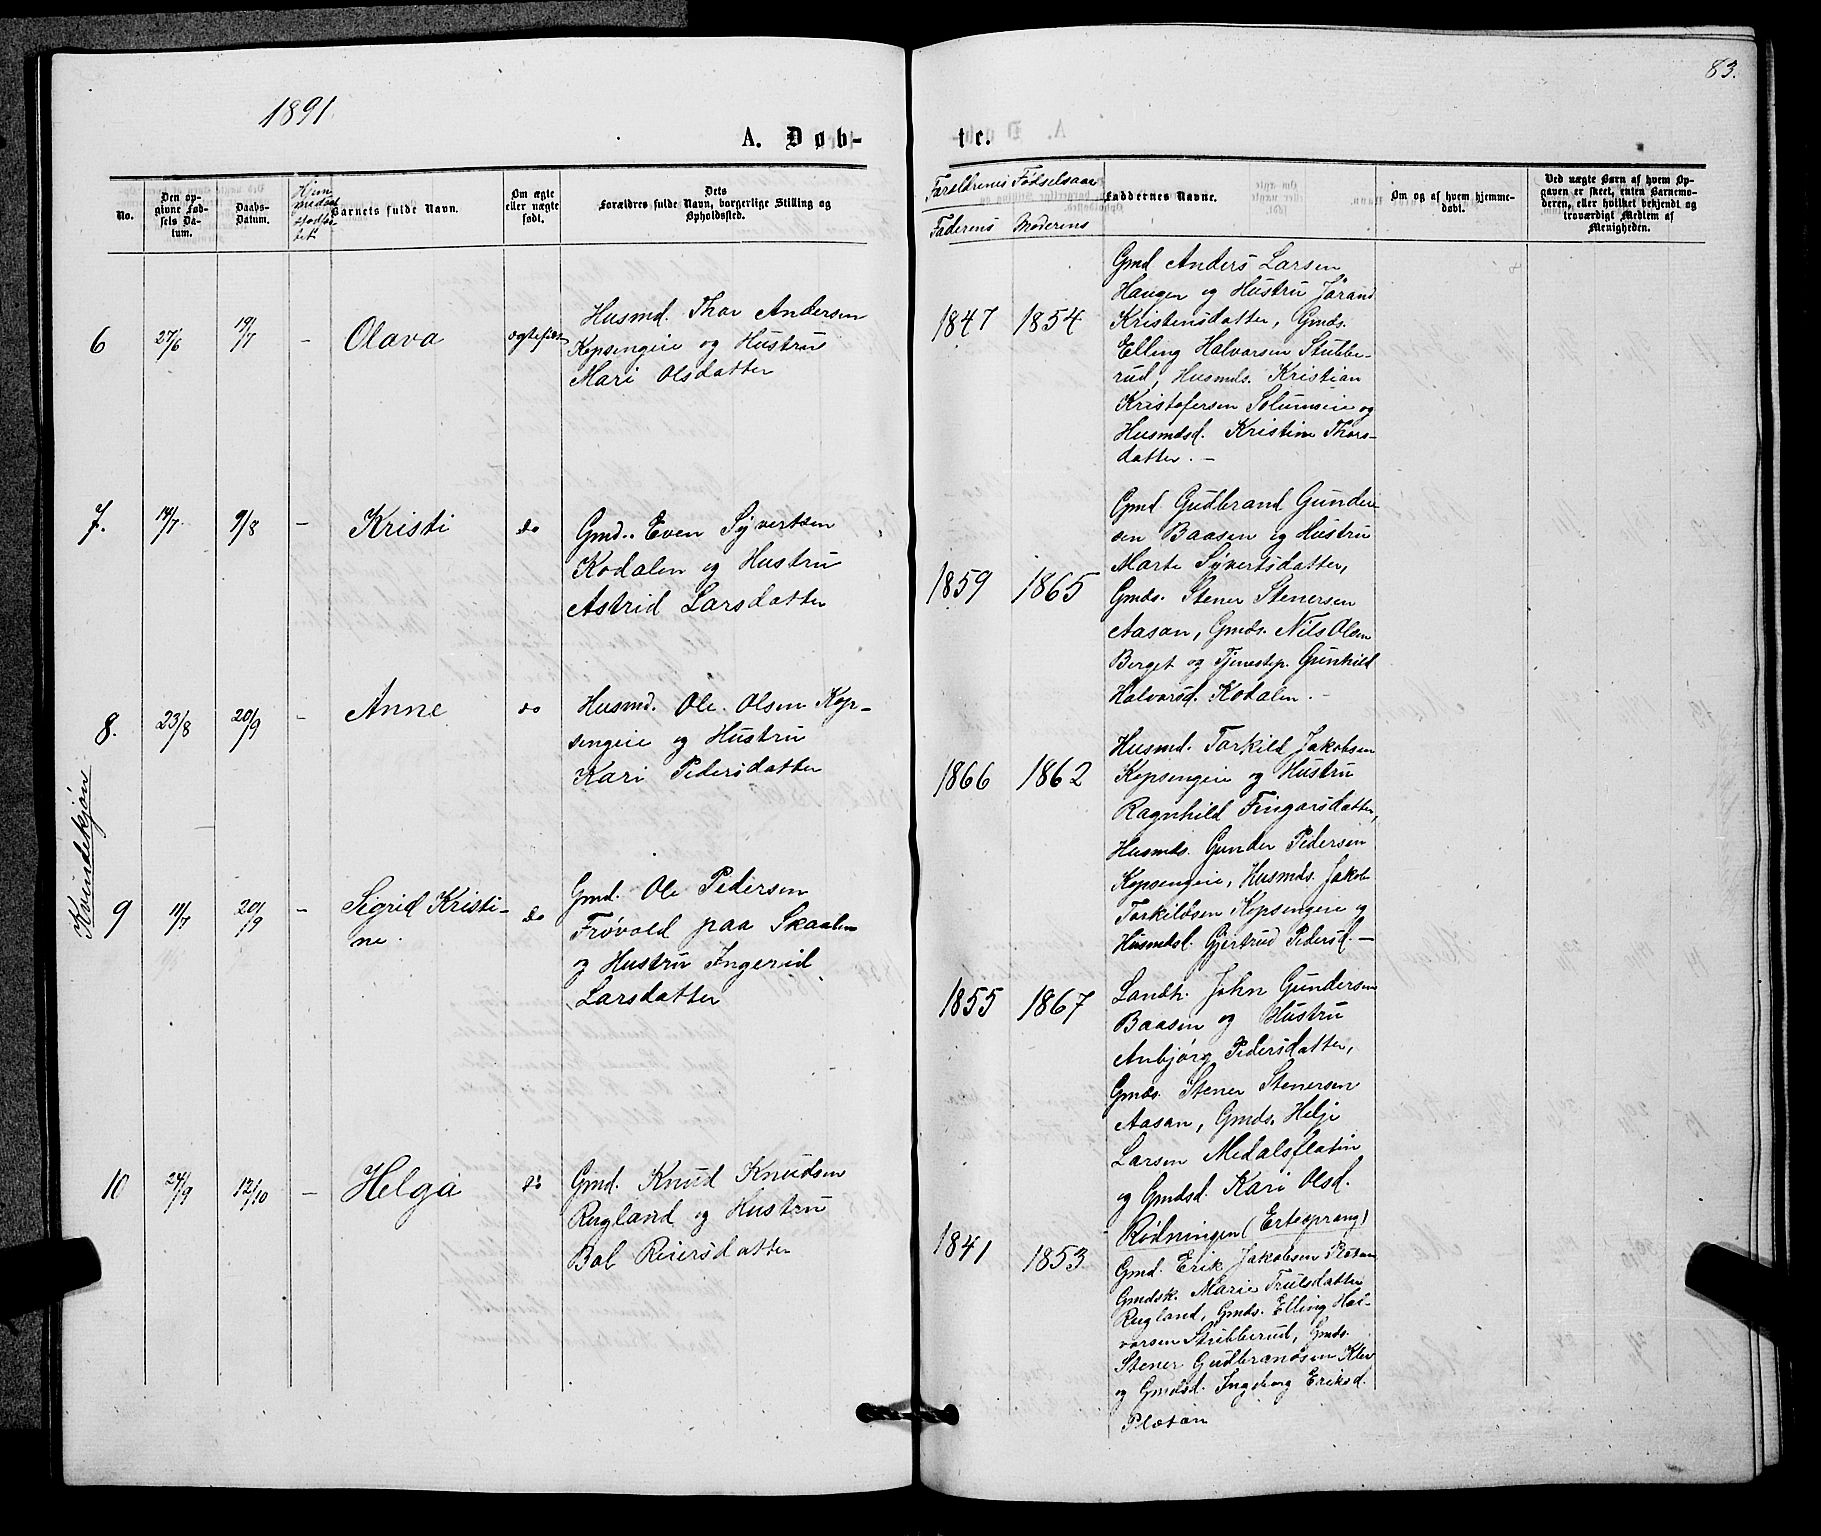 1891
83.
A. Døb-
te.
No.
Den op-
givne Fød-
sels Da-
tum.
Daabs-
Datum.
Barnets fulde Navn.
Om ægte
eller uægte
født.
Dets
Forældres fulde Navn, borgerlige Stilling og
Opholdssted.
Forældrenes Fødselsaar
Faderens
Moderens
Faddernes Navne.
Om og af hvem hjemme-
døbt.
Ved uægte Børn af hvem Op-
gaven er skeet, enten Barnemo-
deren, eller hvilket bekjendt og
troværdigt Medlem af
Menigheden.
Kvindekjøn
6
27/6
19/7
-
Olava
ægtefødt
Husmd. Thor Andersen
Kopsengeie og Hustru
Mari Olsdatter
1847
1854
Gmd Anders Larsen
Haugen og Hustru Jørand
Kristensdatter, Gmds.
Elling Halvorsen Stubbe-
rud, Husmds. Kristian
Kristofersen Solumseie og
Husmdsd. Kristine Thors-
datter. -
7.
14/7.
9/8
-
Kristi
do
Gmd. Even Syvertsen
Kodalen og Hustru
Astrid Larsdatter
1859
1865
Gmd Gudbrand Gunder
sen Baasen og Hustru
Marte Syvertsdatter,
Gmds. Stener Stenersen
Aasan, Gmds. Nils Olsen
Berget og Tjenestep. Gunhild
Halvorsd. Kodalen. -
8.
23/8
20/9
-
Anne
do
Husmd. Ole Olsen Kop-
sengeie og Hustru
Kari Pedersdatter
1866
1862
Husmd. Torkild Jakobsen
Kopsengeie og Hustru
Ragnhild Fingarsdatter,
Husmds. Gunder Pedersen
Kopsengeie, Husmds. Jakob
Torkildsen Kopsengeie og
Husmdsd. Gjertrud Pedersd. -
9
11/7
20/9
-
Sigrid Kristi-
ne.
do
Gmd. Ole Pedersen
Frøvold paa Skaalen
og Hustru Ingerid
Larsdatter
1855
1867
Landh. John Gundersen
Baasen og Hustru
Anbjørg Pedersdatter,
Gmds. Stener Stenersen
Aasan, Gmds. Helje
Larsen Medalsflaten
og Gmdsd. Kari Olsd.
Rødningen (Ertesprang)
10
24/9
12/10
-
Helga
do
Gmd. Knud Knudsen
Rugland og Hustru
Bol Reiersdatter
1841
1853
Gmd. Erik Jakobsen Plasan
Gmdsk. Marie Trulsdatter
Rugland, Gmds. Elling Hal-
vorsen Stubberud, Gmds.
Stener Gudbrandsen Klev
og Gmdsd. Ingeborg Eriksd.
Plasan